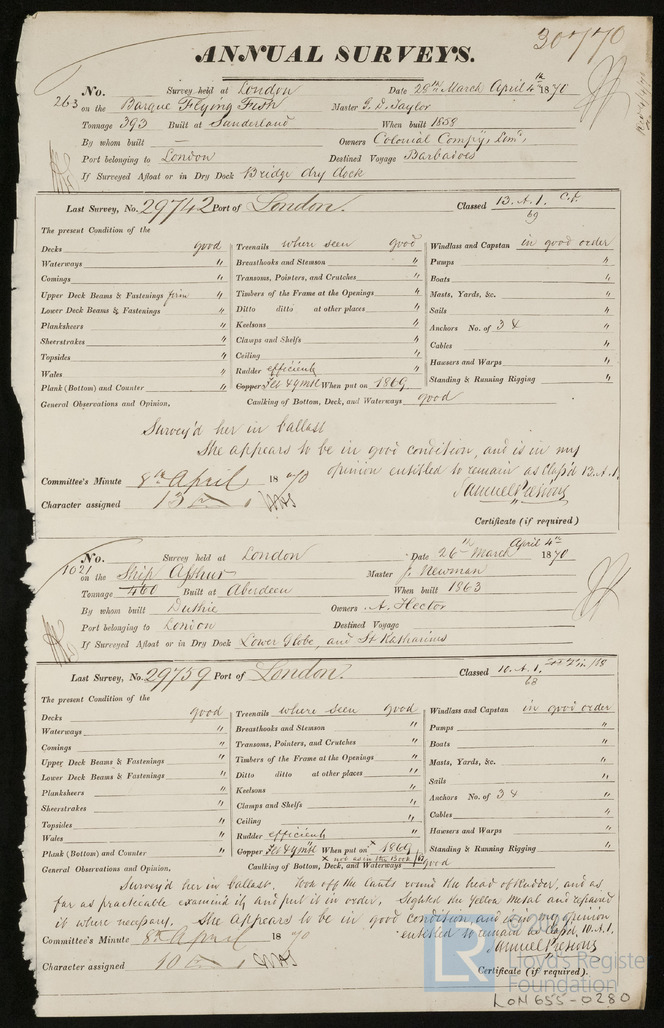 30770
ANNUAL SURVEYS.
No. 263 Survey held at London Date 28th March April 4th 1870
on the Barque Flying Fish Master G. D. Taylor
Tonnage 393 Built at Sunderland When built 1858
By whom built — Owners Colonial Compy, Limd,
Port belonging to London Destined Voyage Barbadoes
If Surveyed Afloat or in Dry Dock Bridge dry dock
Last Survey, No. 29742 Port of London. Classed 13. A. 1. C.F. 69
The present Condition of the
Decks good Treenails where seen good Windlass and Capstan in good order
Waterways " Breasthooks and Stemson " Pumps "
Comings " Transoms, Pointers, and Crutches " Boats "
Upper Deck Beams & Fastenings " Timbers of the Frame at the Openings " Masts, Yards, &c. "
Lower Deck Beams & Fastenings " Ditto ditto at other places " Sails "
Planksheers " Keelsons " Anchors No. of 3 4 "
Sheerstrakes " Clamps and Shelfs " Cables "
Topsides " Ceiling " Hausers and Warps "
Wales " Rudder efficient Standing & Running Rigging "
Plank (Bottom) and Counter " Copper Felt & Y Mtl When put on 1869
General Observations and Opinion, Caulking of Bottom, Deck, and Waterways good
Survey'd her in ballast
She appears to be in good condition, and is in my
opinion entitled to remain as Class'd 13. A. 1.
Committee's Minute 8th April 1870
Samuel Pretious
Character assigned 13 A 1
Certificate (if required)
No. 1021 Survey held at London Date 26th March April 4th 1870
on the Ship Asshur Master J. Newman
Tonnage 460 Built at Aberdeen When built 1863
By whom built Duthie Owners A. Hector
Port belonging to London Destined Voyage
If Surveyed Afloat or in Dry Dock Lower Globe, and St Katharines
Last Survey, No. 29759 Port of London. Classed 10. A. 1. 68
The present Condition of the
Decks good Treenails where seen good Windlass and Capstan in good order
Waterways " Breasthooks and Stemson " Pumps "
Comings " Transoms, Pointers, and Crutches " Boats "
Upper Deck Beams & Fastenings " Timbers of the Frame at the Openings " Masts, Yards, &c. "
Lower Deck Beams & Fastenings " Ditto ditto at other places " Sails "
Planksheers " Keelsons " Anchors No. of 3 4 "
Sheerstrakes " Clamps and Shelfs " Cables "
Topsides " Ceiling " Hausers and Warps "
Wales " Rudder efficient Standing & Running Rigging "
Plank (Bottom) and Counter " Copper Felt & Y Mtl When put on x 1869
x not as in the Book
General Observations and Opinion, Caulking of Bottom, Deck, and Waterways good
Survey'd her in ballast. Took off the Cants round the head of Rudder, and as
far as practicable examined it, and put it in order. Sighted the Yellow Metal and repaired
it where necessary. She appears to be in good condition, and is in my opinion
entitled to remain as Class'd, 10. A. 1.
Committee's Minute 8th April 1870
Samuel Pretious
Character assigned 10 A 1
Certificate (if required).
© 2020
LR
Lloyd's Register
Foundation
LON655-0280